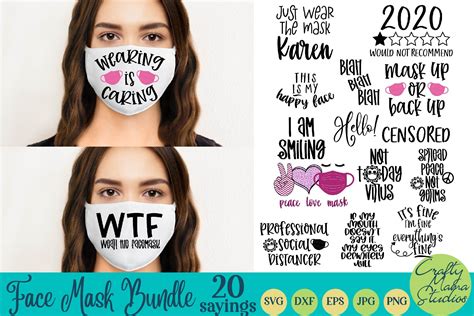 WEARING
IS
CARING
WTF
WEAR THE FACEMASK
JUST WEAR
THE MASK
Karen
2020
WOULD NOT RECOMMEND
THIS IS
MY
happy face
BLAH
BLAH
BLAH
MASK UP
OR
BACK UP
I AM
SMILING
Hello!
CENSORED
peace love mask
NOT
TODAY
VIRUS
SPREAD
PEACE
NOT
GERMS
PROFESSIONAL
SOCIAL
DISTANCER
IF MY
MOUTH
DOESN'T
SAY IT,
MY EYES
DEFINITELY
WILL
IT'S
FINE
I'M FINE
everything's
Fine
Face Mask Bundle
20
sayings
SVG
DXF
EPS
JPG
PNG
Crafty
Mama
Studios